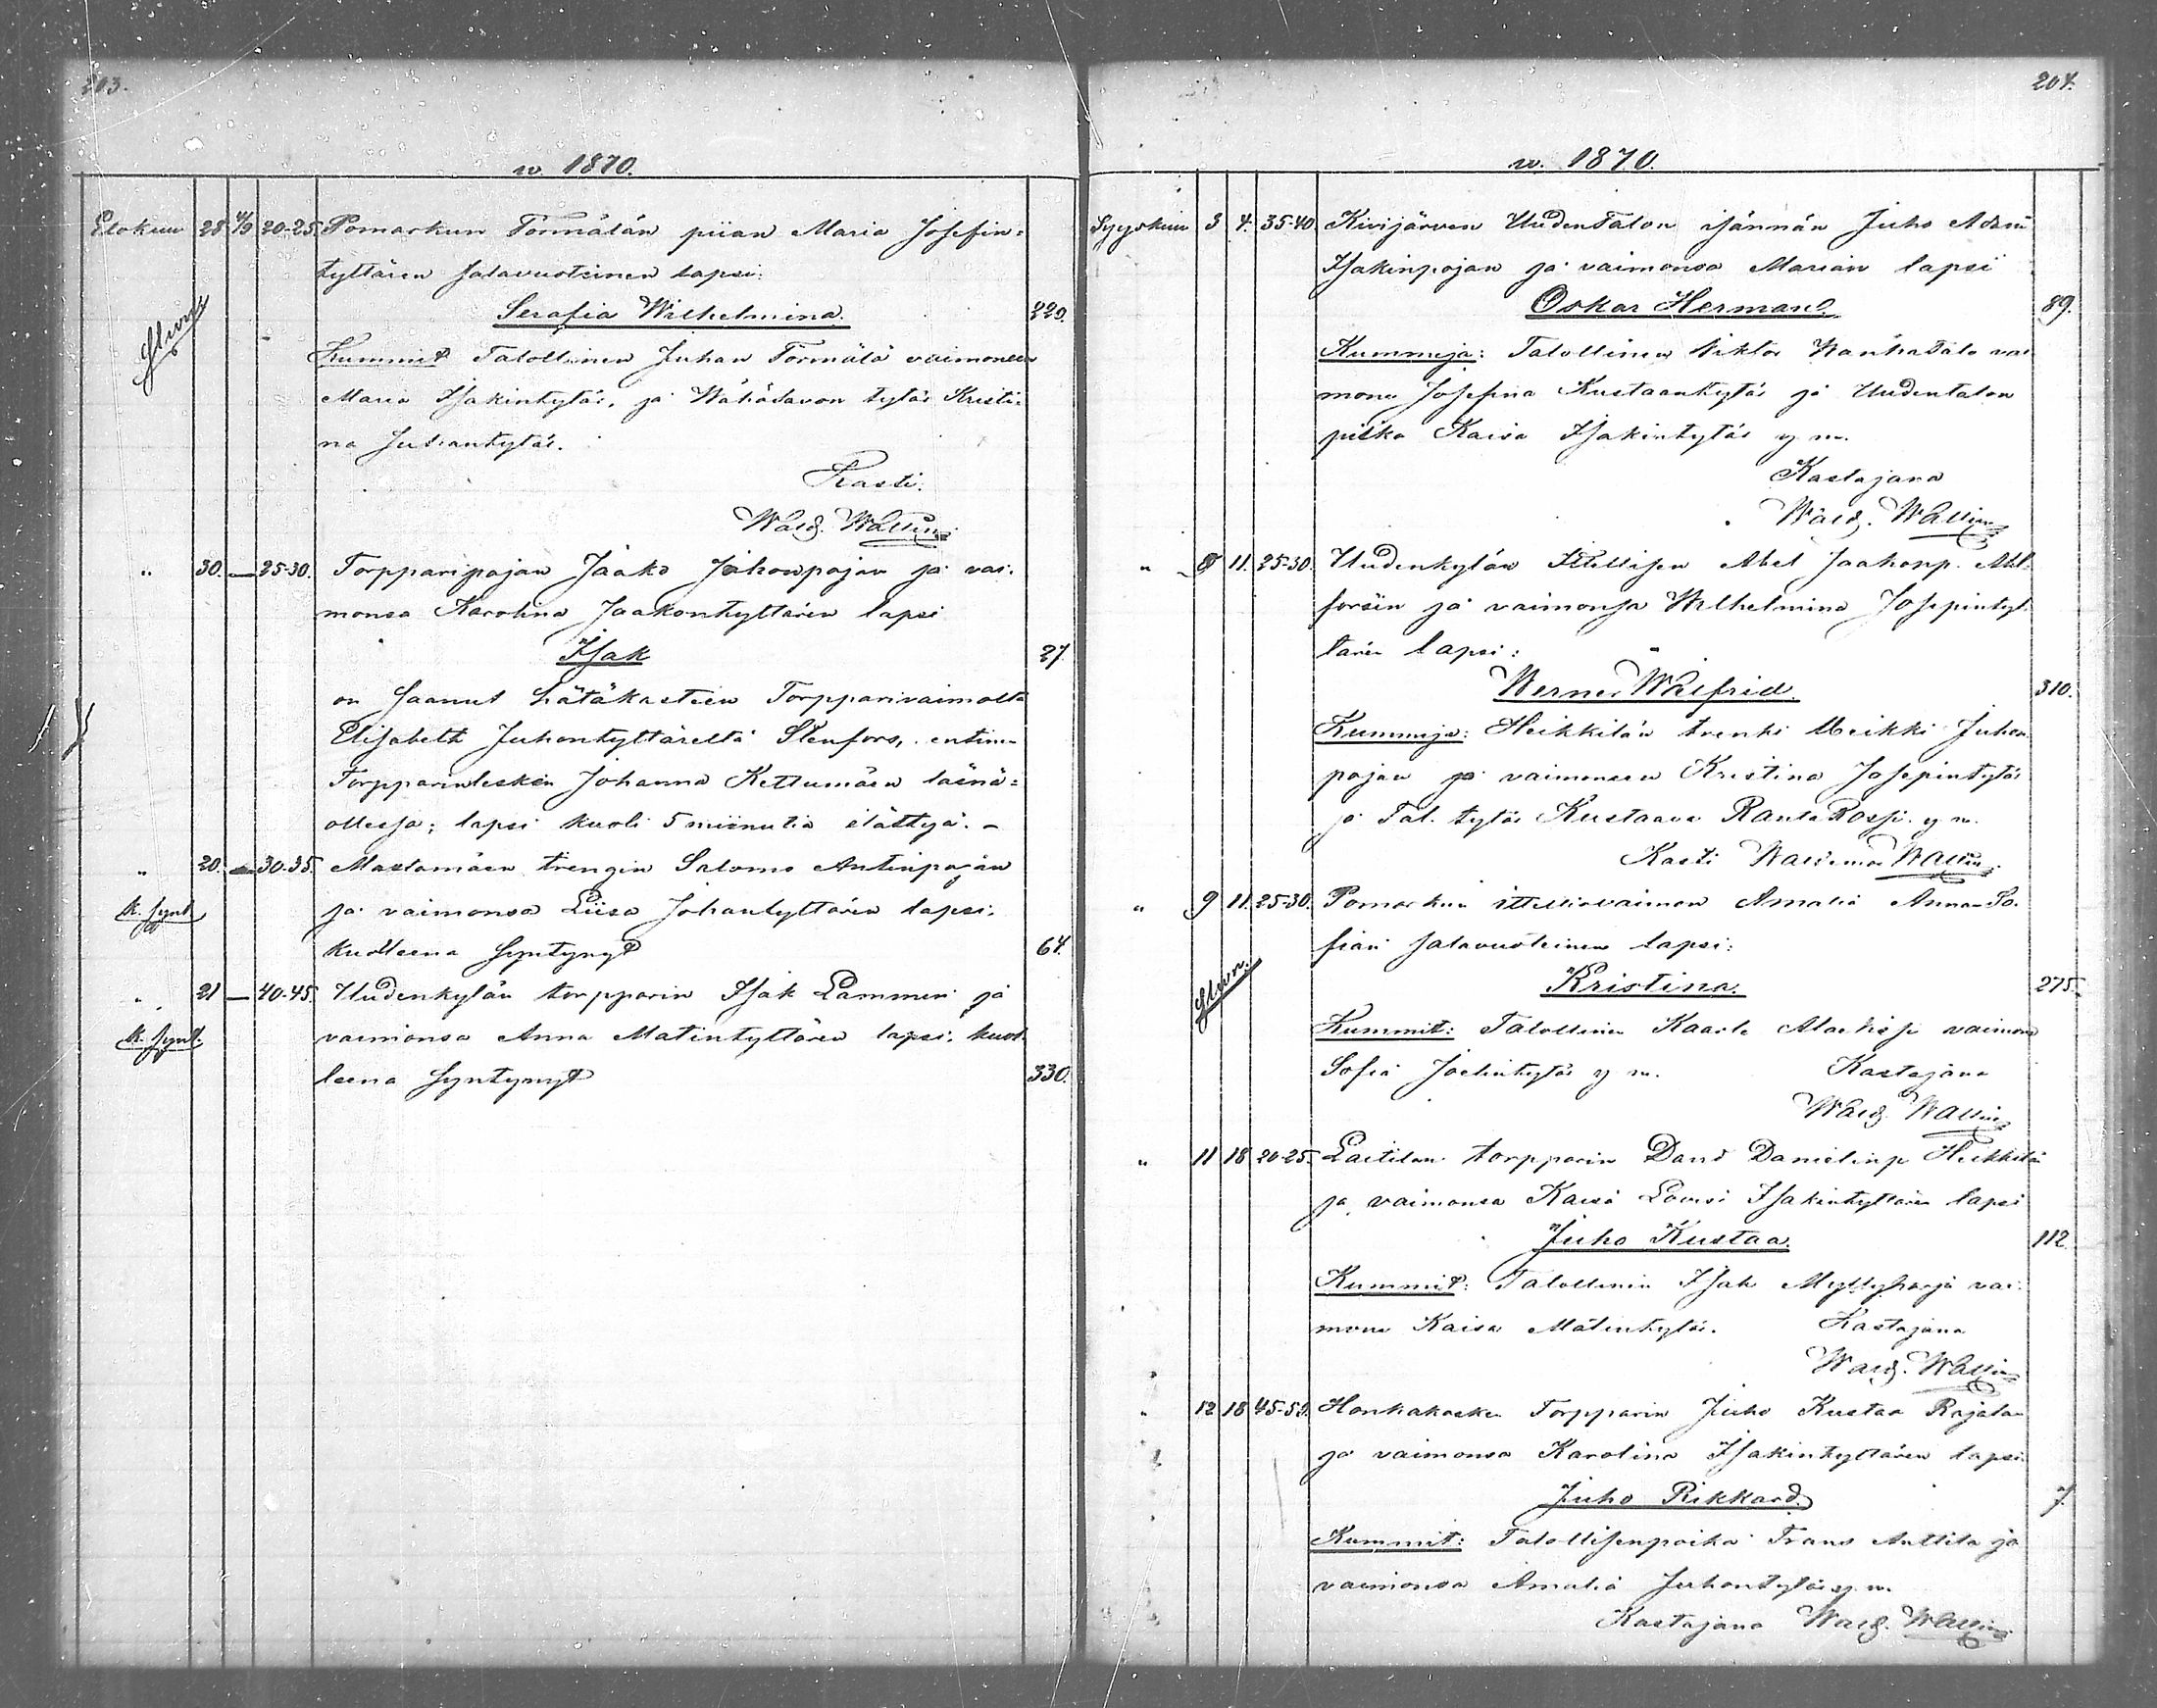 203.
w. 1870.
Elokuu 28 4/9 20-25. Pomarkun Törmälän piian Maria Josefin-
tyttären salavuoteinen lapsi:
Serafia Wilhelmina. 229.
Kummit Talollinen Juhan Törmälä vaimoneen
Maria Isakintytär, ja Wähäsavon tytär Kristi-
na Juhantytär.
Kasti:
Wald. Wallin.
" 30. — 25-30. Torpparipojan Jaako Jahonpojan ja vai-
monsa Karolina Jaakontyttären lapsi
Isak 27
on saanut hätäkasteen Torpparivaimolta
Elisabeth Juhontyttäreltä Stenfors, entin.
Torpparinlesken Johanna Kettumäen läsnä-
ollessa; lapsi kuoli 5 minutia elättyä. –
" 20. — 30-35. Mastamäen trengin Salomo Antinpojan
K. synt. ja vaimonsa Liisa Johantyttären lapsi.
kuolleena syntynyt 64.
" 21 — 40-45. Uudenkylän torpparin Isak Lammin ja
K. synt. vaimonsa Anna Matintyttären lapsi. kuol-
leena syntynyt 330.
204.
w. 1870.
Syyskuu 3 4. 35-40 Kivijärven Uudentalon isännän Juho
Isakinpojan ja vaimonsa Marian lapsi
Oskar Herman. 89.
Kummeja: Talollinen Viktor Wanhatalo vai-
mone Josefina Kustaantytär ja Uudentalon
piika Kaisa Isakintytär y m.
Kastajana
Wald. Wallin
" 9 11. 25-30. Uudenkylän Itsellisen Abel Jaakonp. Ahl-
forsin ja vaimonsa Wilhelmina Josepintyt-
tären lapsi:
Werner Walfrid. 310.
Kummeja: Heikkilän trenki Heikki Juhon-
pojan ja vaimoneen Kristina Josepintytär
ja Tal. tytär Kustaava RantaRossi. y m.
Kasti Waldemar Wallin.
" 9 11. 25-30. Pomarkun ittellisvaimon Amalia Anna-So-
fian salavuoteinen lapsi:
Kristina. 275.
Kummit: Talollinen Kaarle vaimone
Sofia y m. Kastajana
Wald. Wallin
" 11 18 20-25. Laitilan torpparin David Danielinp Heikkilä
ja vaimonsa Kaisa Lovisa Isakintyttären lapsi
Juho Kustaa. 112
Kummit: Talollinen Isak Myllyharja vai-
mone Kaisa Matintytär. Kastajana
Wald. Wallin
" 12 18 45-50. Honkakosken Torpparin Juho Kustaa Rajalan
ja vaimonsa Karolina Isakintyttären lapsi
Juho Rikkard. 7.
Kummit: Talollisenpoika Frans Anttila ja
vaimonsa Amalia Juhontytär y. m.
Kastajana Wald. Wallin.